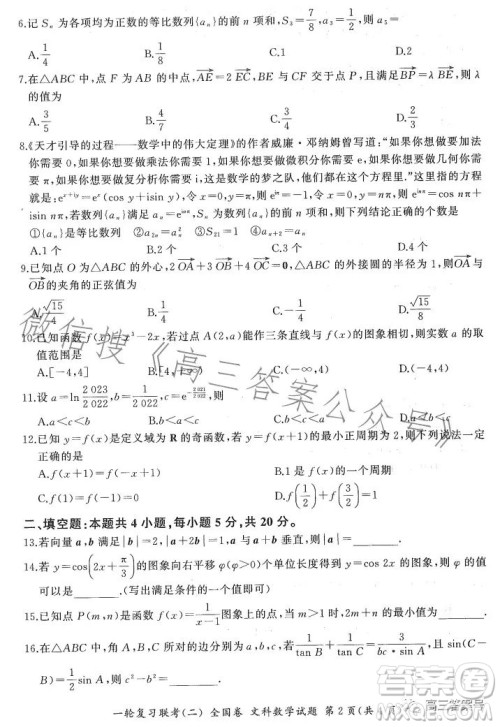 6.记 Sₙ 为各项均为正数的等比数列{aₙ}的前 n 项和,S₃=7/8,a₃=1/2,则 a₅=
A.1/4 B.1/2 C.1 D.2
7.在△ABC 中,点 F 为 AB 的中点,CE=2EA,BE 与 CF 交于点 P,且满足BP=λBE,则 λ
的值为
A.3/5 B.4/7 C.3/4 D.2/3
8.《天才引导的过程——数学中的伟大定理》的作者威廉·邓纳姆曾写道:“如果你想要做加法
你需要 0,如果你想要做乘法你需要 1,如果你想要做微积分你需要 e,如果你想要做几何你需
要 π,如果你想要做复分析你需要 i,这是数学的梦之队,他们都在这个方程里.”这里指的方程
就是:e^(x+iy)=e^x(cos y+isin y),令 x=0,y=π,则 e^(iπ)+1=0,令 x=0,y=nπ,则 e^(inπ)=cos nπ+
isin nπ,若数列{aₙ}满足 aₙ=e^(inπ),Sₙ 为数列{aₙ}的前 n 项和,则下列结论正确的个数是
①{aₙ}是等比数列 ②a₂ₙ=a²ₙ
A.1 个 B.2 个 C.3 个 D.4 个
9.已知点 O 为△ABC 的外心,2OA+3OB+4OC=0,△ABC 的外接圆的半径为 1,则OA与
OB的夹角的正弦值为
A.√15/4 B.1/4 D.√15/8
10.已知函数 若过点 A(2,a)能作三条直线与 f(x)的图象相切,则实数 a 的取
值范围是
A.[-4,4] B.[4,+∞) C.(-∞,4) D.(-4,4)
11.设 a=ln 2 023/2 022,b=1/2 022,则
A.a<b<c
12.已知 y=f(x)是定义域为 R 的奇函数,若 y=f(x+1)的最小正周期为 2,则下列说法一定
正确的是
A.f(x+1)=f(x-1) B.1 是 f(x)的一个周期
C.f(1)=f(-1)=1 D.f(1/2)+f(3/2)=1
二、填空题:本题共 4 小题,每小题 5 分,共 20 分。
13.若向量 a,b 满足|b|=2,|a+2b|=1,|a+b|=|a|,则|a+3b|=________.
14.若 y=cos(2x+π/3)的图象向右平移 φ(φ>0)个单位长度得到 y=cos 2x 的图象,则 φ 的值
可以是________.(写出满足条件的一个值即可)
15.已知点 P(m,n)是函数 y=1/(x-1)图象上的点,当 m>1 时,2m+n 的最小值为________.
16.在△ABC 中,角 A,B,C 所对的边分别为 a,b,c,若1/3=a/(bc·sin A),且 sin(C-
B)=1/2,则 sin A=________.
一轮复习联考(二) 全国卷 文科数学试题 第 2 页(共
微信搜《高三答案公众号》
高三答案号